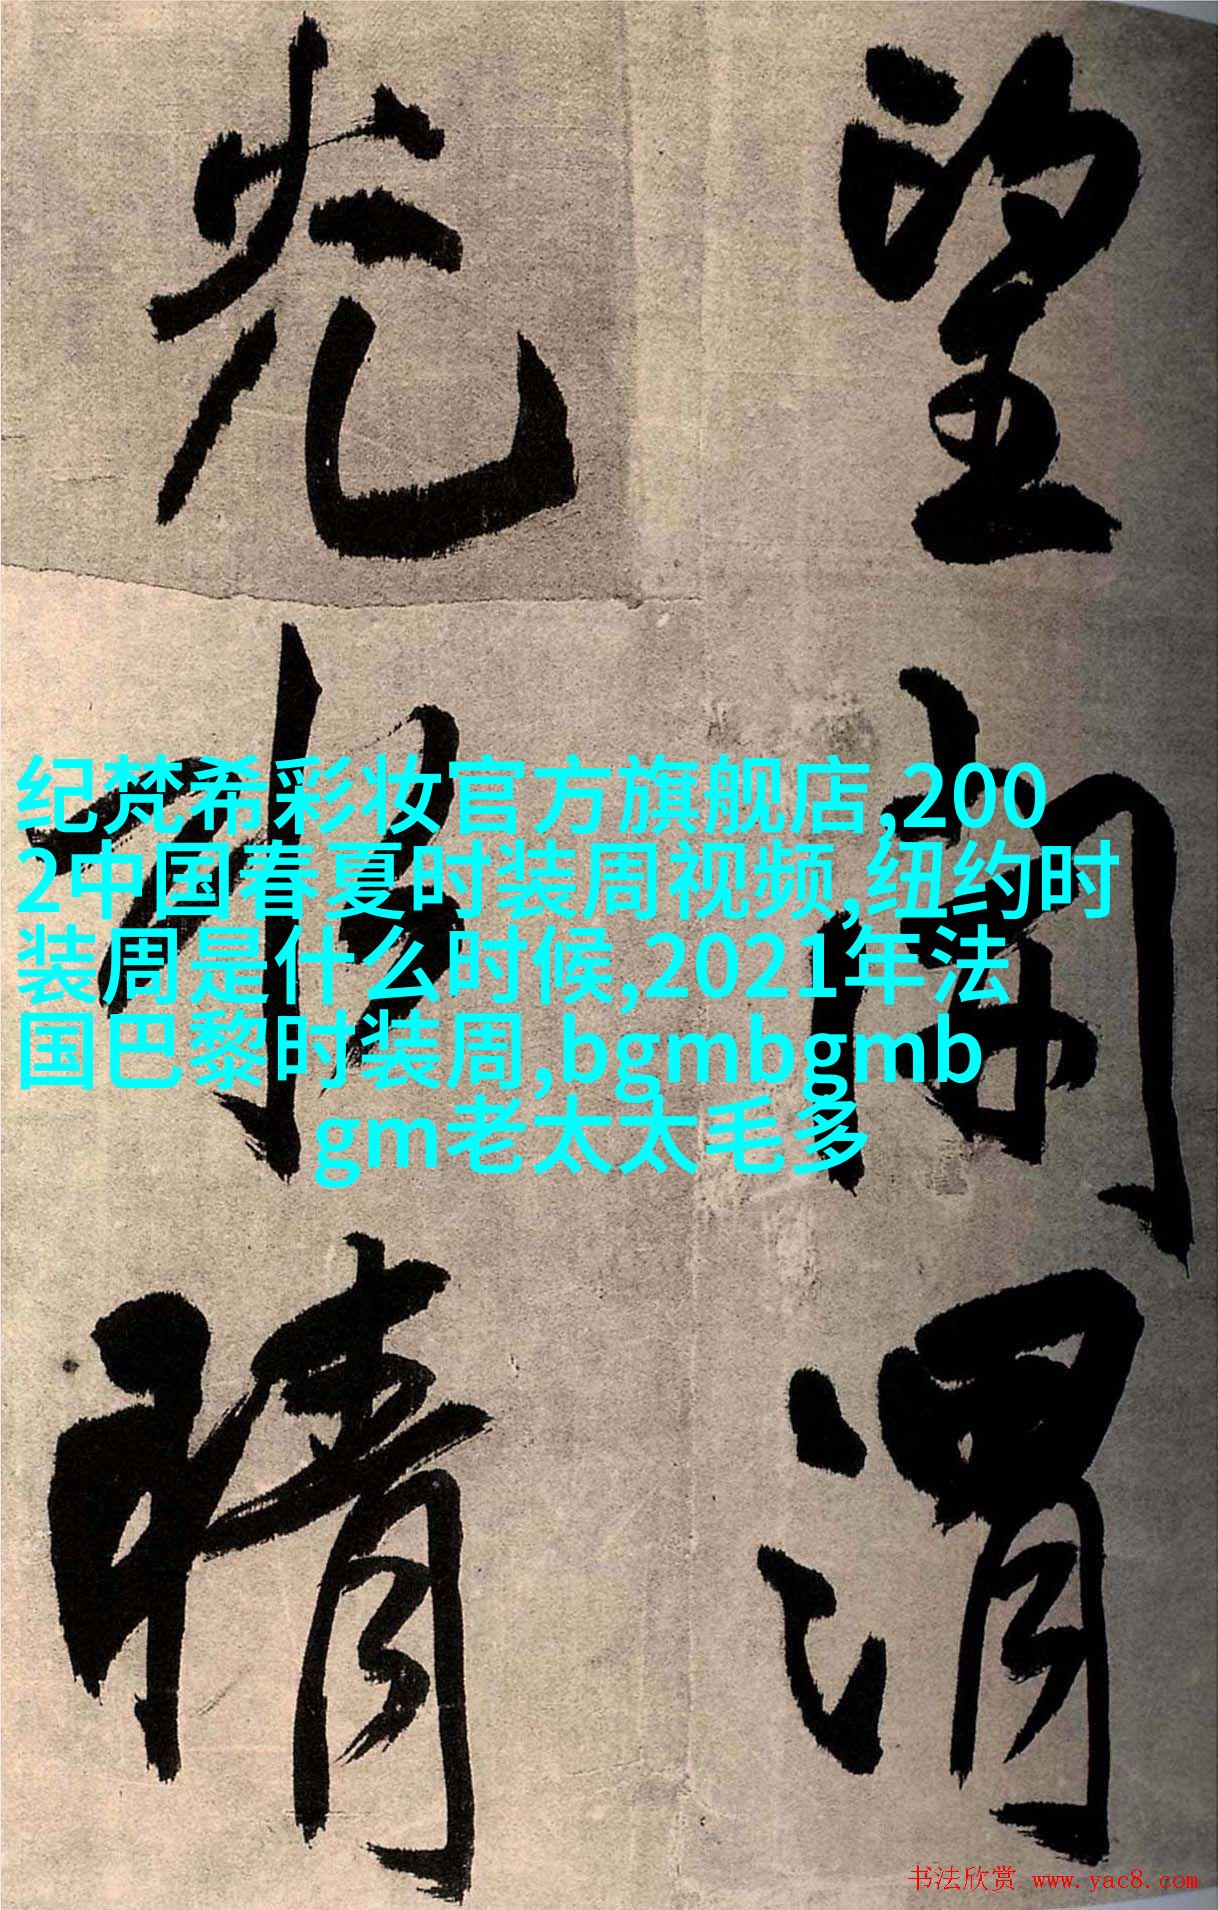 望 渭
光 晴
纪梵希彩妆官方旗舰店,200
2中国春夏时装周视频,纽约时
装周是什么时候,2021年法
国巴黎时装周,bgmbgmb
gm老太太毛多
书法欣赏 www.yac8.com